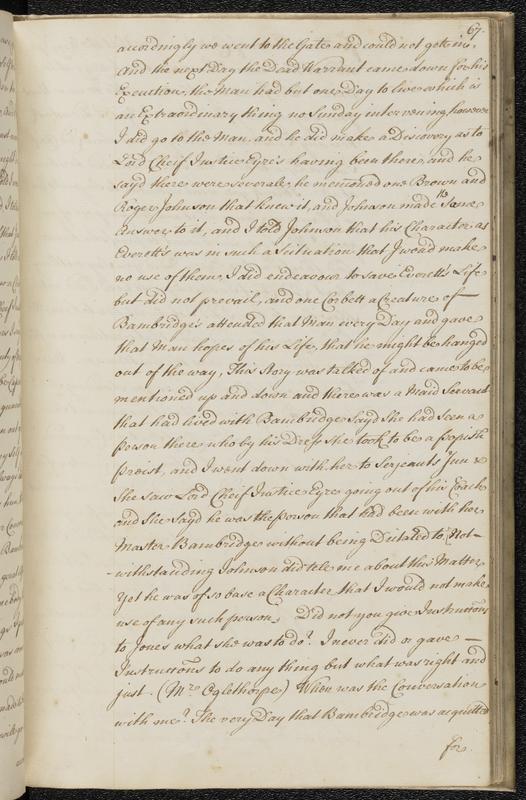 67.
accordingly we went to the Gate and could not get in.
And the next Day the Dead Warrant came down for his
Execution, the Man had but one Day to live which is
an Extraordinary thing no Sunday intervening, however
I did go to the Man, and he did make a Discovery as to
Lord Cheif Justice Eyre's having been there, and he
sayd there were several, he mentioned one Brown and
Roger Johnson that knew it, and Johnson made the Same
Answer to it, and I told Johnson that his Character as
Everett's was in such a Scituation that I woud make
no use of them, I did endeavour to save Everett's Life
but did not prevail, and one Corbett a Creature of
Bambridge's attended that Man every Day and gave
that Man hopes of his Life, that he might be hanged
out of the way, This Story was talked of and came to be
mentioned up and down and there was a Maid Servant
that had lived with Bambridge Sayd She had Seen a
person there who by his Dress She took to be a popish
preist, and I went down with her to Serjeants Inn &
She saw Lord Cheif Justice Eyre going out of his Coach
and She Sayd he was the person that had been with her
Master Bambridge without being Dictated to, Not-
-withstanding Johnson did tell me about this Matter
Yet he was of so base a Character that I would not make
use of any such person, Did not you give Instructions
to Jones what she was to do? I never did or gave
Instructions to do any thing but what was right and
just. (Mr. Oglethorpe) When was the Conversation
with me? The very Day that Bambridge was acquitted
for